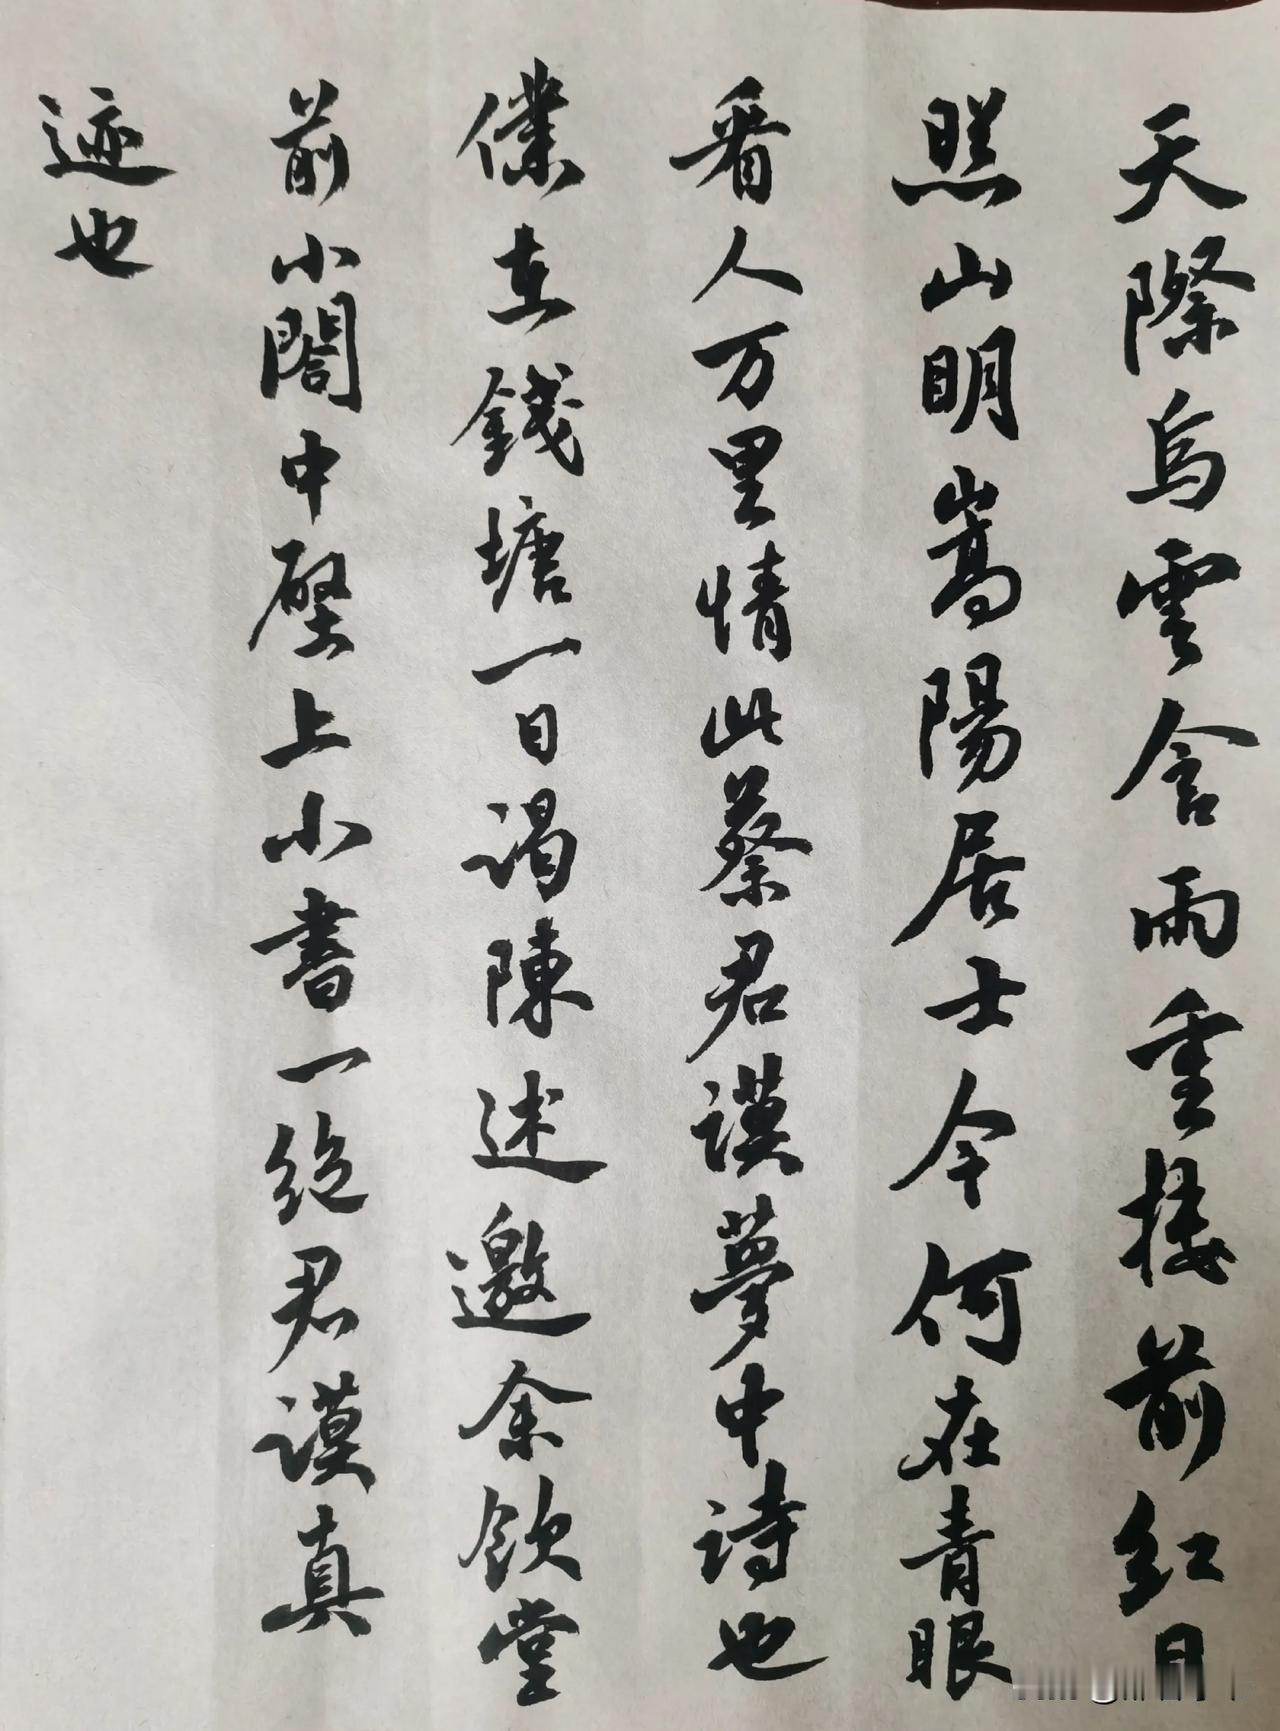 天際烏雲含雨重樓前紅日
照山明嵩陽居士今何在青眼
看人万里情此蔡君謨夢中詩也
僕在錢塘一日謁陳述邀余飲堂
前小閤中壁上小書一絕君謨真
迹也